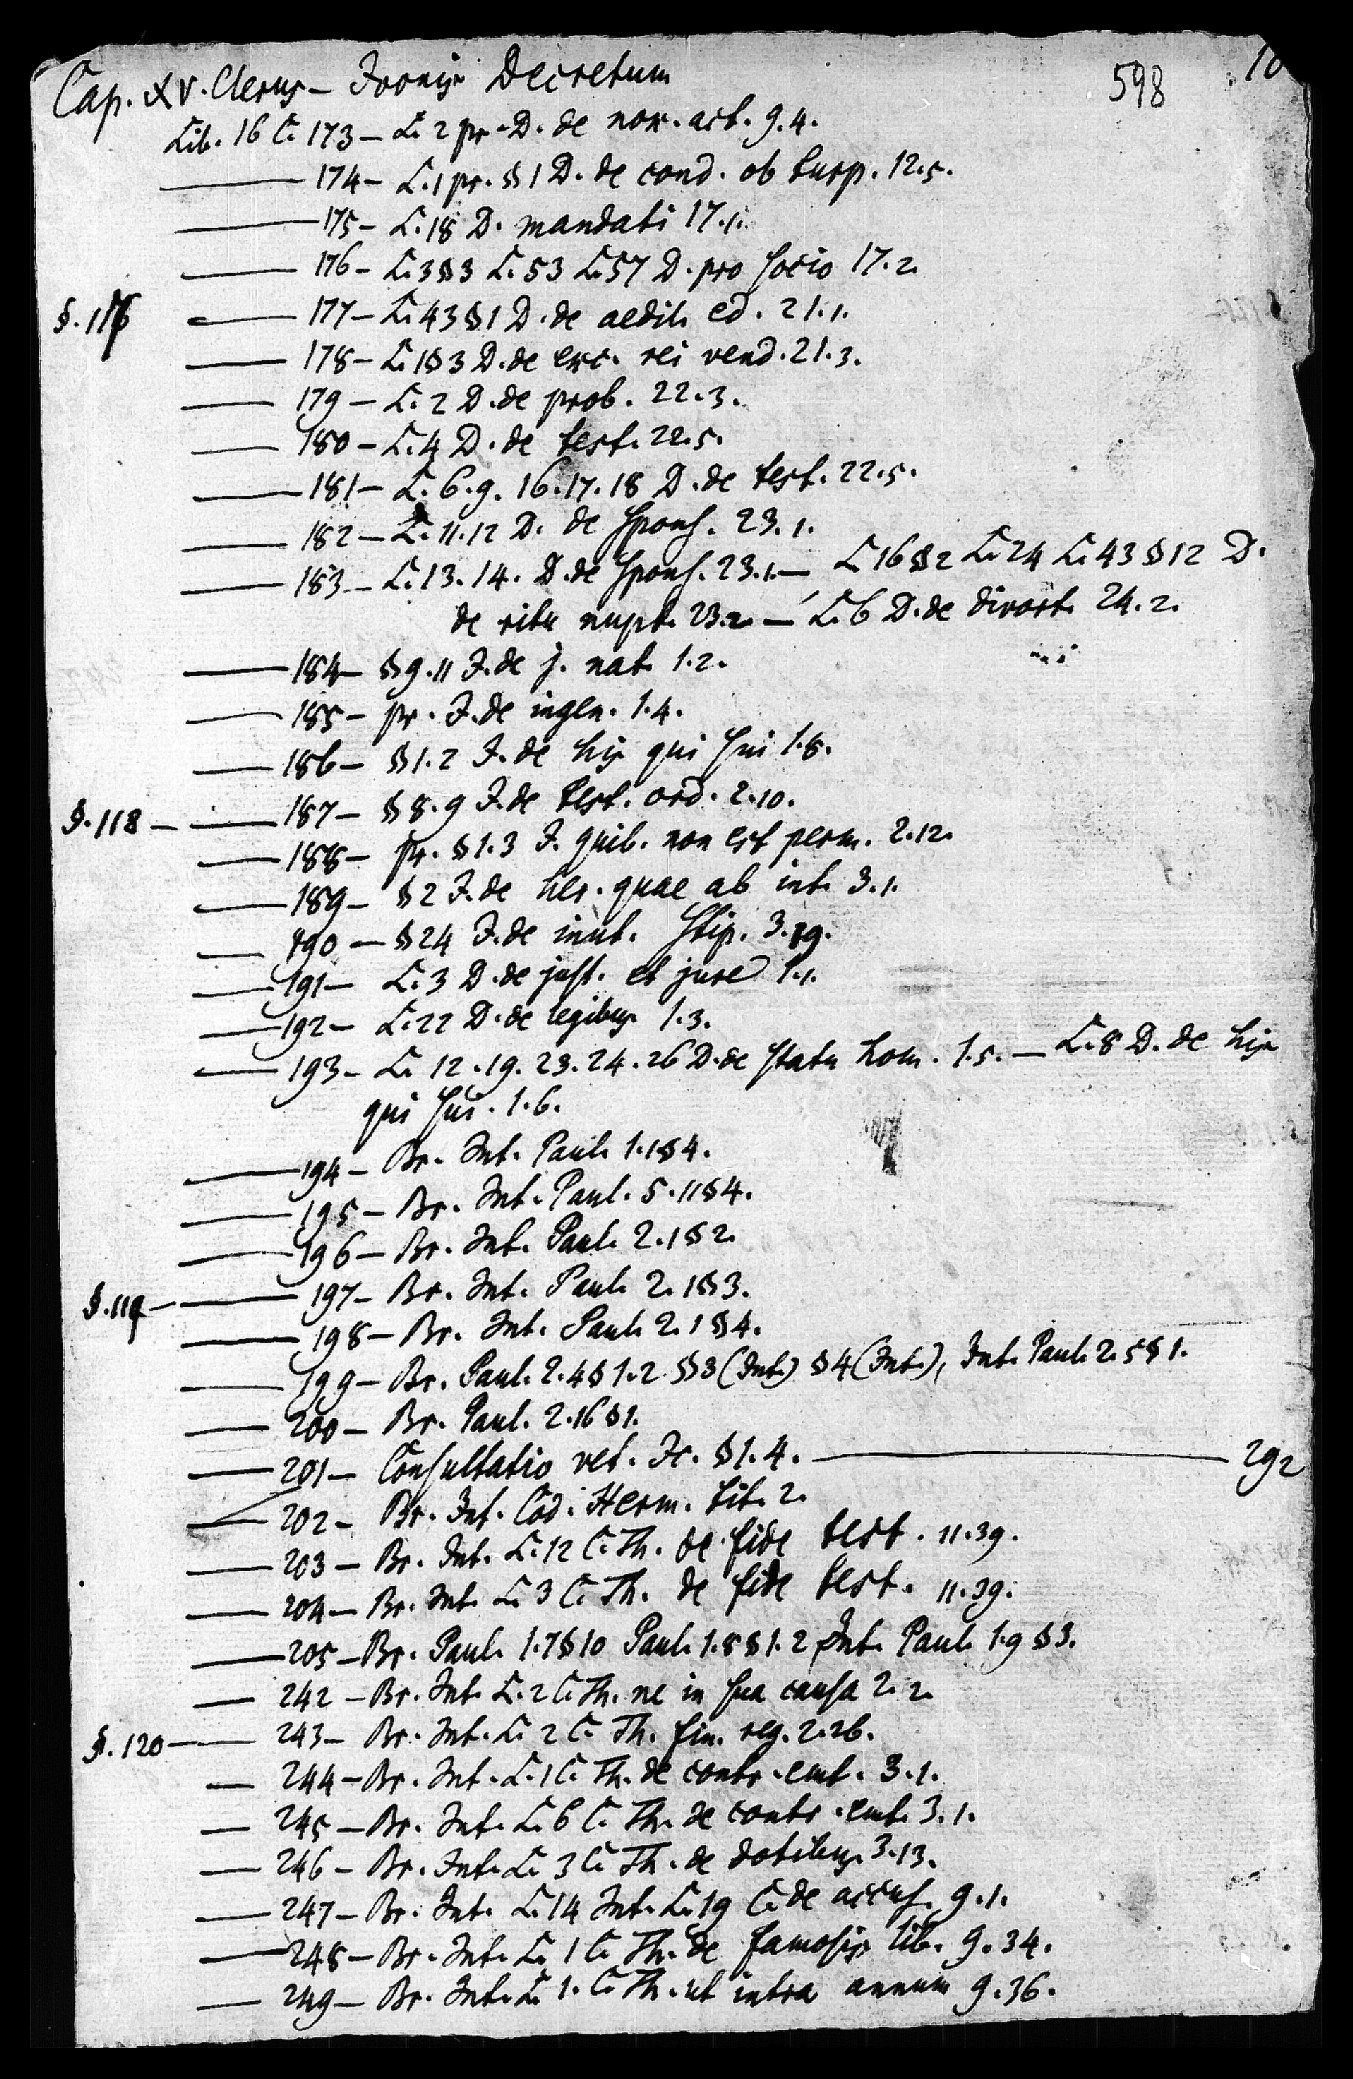 598
10
Cap. XV. Clerus – Ivonis Decretum
Lib. 16 C. 173 – L. 2 pr. D. de nox. act. 9.4.
— 174 – L. 1 pr. § 1 D. de cond. ob turp. 12.5.
— 175 – L. 18 D. mandati 17.1.
— 176 – L. 3 § 3 L. 53 L. 57 D. pro socio 17.2.
§. 117 — 177 – L. 43 § 1 D. de aedil. ed. 21.1.
— 178 – L. 1 § 3 D. de exc. rei vend. 21.3.
— 179 – L. 2 D. de prob. 22.3.
— 180 – L. 4 D. de test. 22.5.
— 181 – L. 6. 9. 16. 17. 18 D. de test. 22.5.
— 182 – L. 11. 12 D. de spons. 23.1.
— 183 – L. 13. 14. D. de spons. 23.1. — L. 16 § 2 L. 24 L. 43 § 12 D.
de ritu nupt. 23.2. — L. 6 D. de divort. 24.2.
— 184 – § 9. 11 I. de j. nat. 1.2.
— 185 – pr. I. de ingen. 1.4.
— 186 – § 1. 2 I. de his qui sui 1.8.
§. 118 — 187 – § 8. 9 I. de test. ord. 2.10.
— 188 – pr. § 1. 3 I. quib. non est perm. 2.12.
— 189 – § 2 I. de her. quae ab int. 3.1.
— 190 – § 24 I. de inut. stip. 3.19.
— 191 – L. 3 D. de just. et jure 1.1.
— 192 – L. 22 D. de legibus 1.3.
— 193 – L. 12. 19. 23. 24. 26 D. de statu hom. 1.5. — L. 8 D. de his
qui sui. 1.6.
— 194 – Br. Int. Paul. 1.1 § 4.
— 195 – Br. Int. Paul. 5.11 § 4.
— 196 – Br. Int. Paul. 2.1 § 2.
§. 119 — 197 – Br. Int. Paul. 2.1 § 3.
— 198 – Br. Int. Paul. 2.1 § 4.
— 199 – Br. Paul. 2.4 § 1. 2 § 3 (Int.) § 4 (Int.), Int. Paul. 2.5 § 1.
— 200 – Br. Paul. 2.16 § 1.
— 201 – Consultatio vet. Jc. § 1. 4. — 292
— 202 – Br. Int. Cod. Herm. tit. 2.
— 203 – Br. Int. L. 12 C. Th. de fide test. 11.39.
— 204 – Br. Int. L. 3 C. Th. de fide test. 11.39.
— 205 – Br. Paul. 1.7 § 10 Paul. 1.8 § 1. 2 Int. Paul. 1.9 § 3.
— 242 – Br. Int. L. 2 C. Th. ne in sua causa 2.2.
§. 120 — 243 – Br. Int. L. 2 C. Th. fin. reg. 2.26.
— 244 – Br. Int. L. 1 C. Th. de contr. emt. 3.1.
— 245 – Br. Int. L. 6 C. Th. de contr. emt. 3.1.
— 246 – Br. Int. L. 3 C. Th. de dotibus 3.13.
— 247 – Br. Int. L. 14 Int. L. 19 C. de accus. 9.1.
— 248 – Br. Int. L. 1 C. Th. de famosis lib. 9.34.
— 249 – Br. Int. L. 1. C. Th. ut intra annum 9.36.